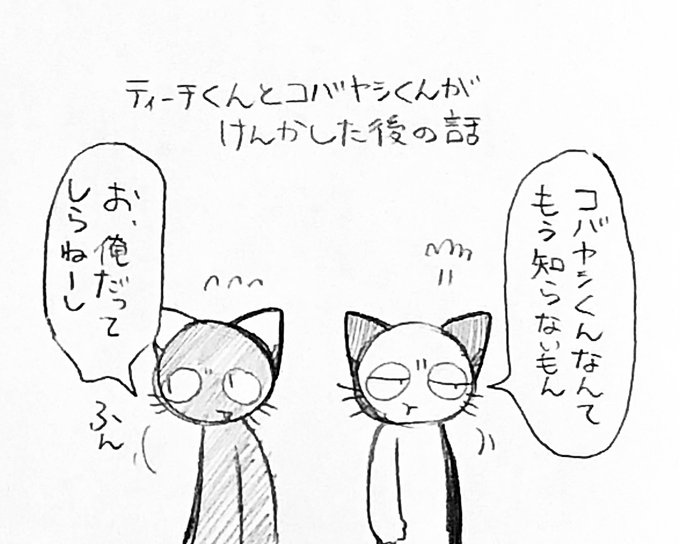 ティーチくんとコバヤシくんが
けんかした後の話
コバヤシくんなんて
もう知らないもん
お、俺だって
しらねーし
ふん